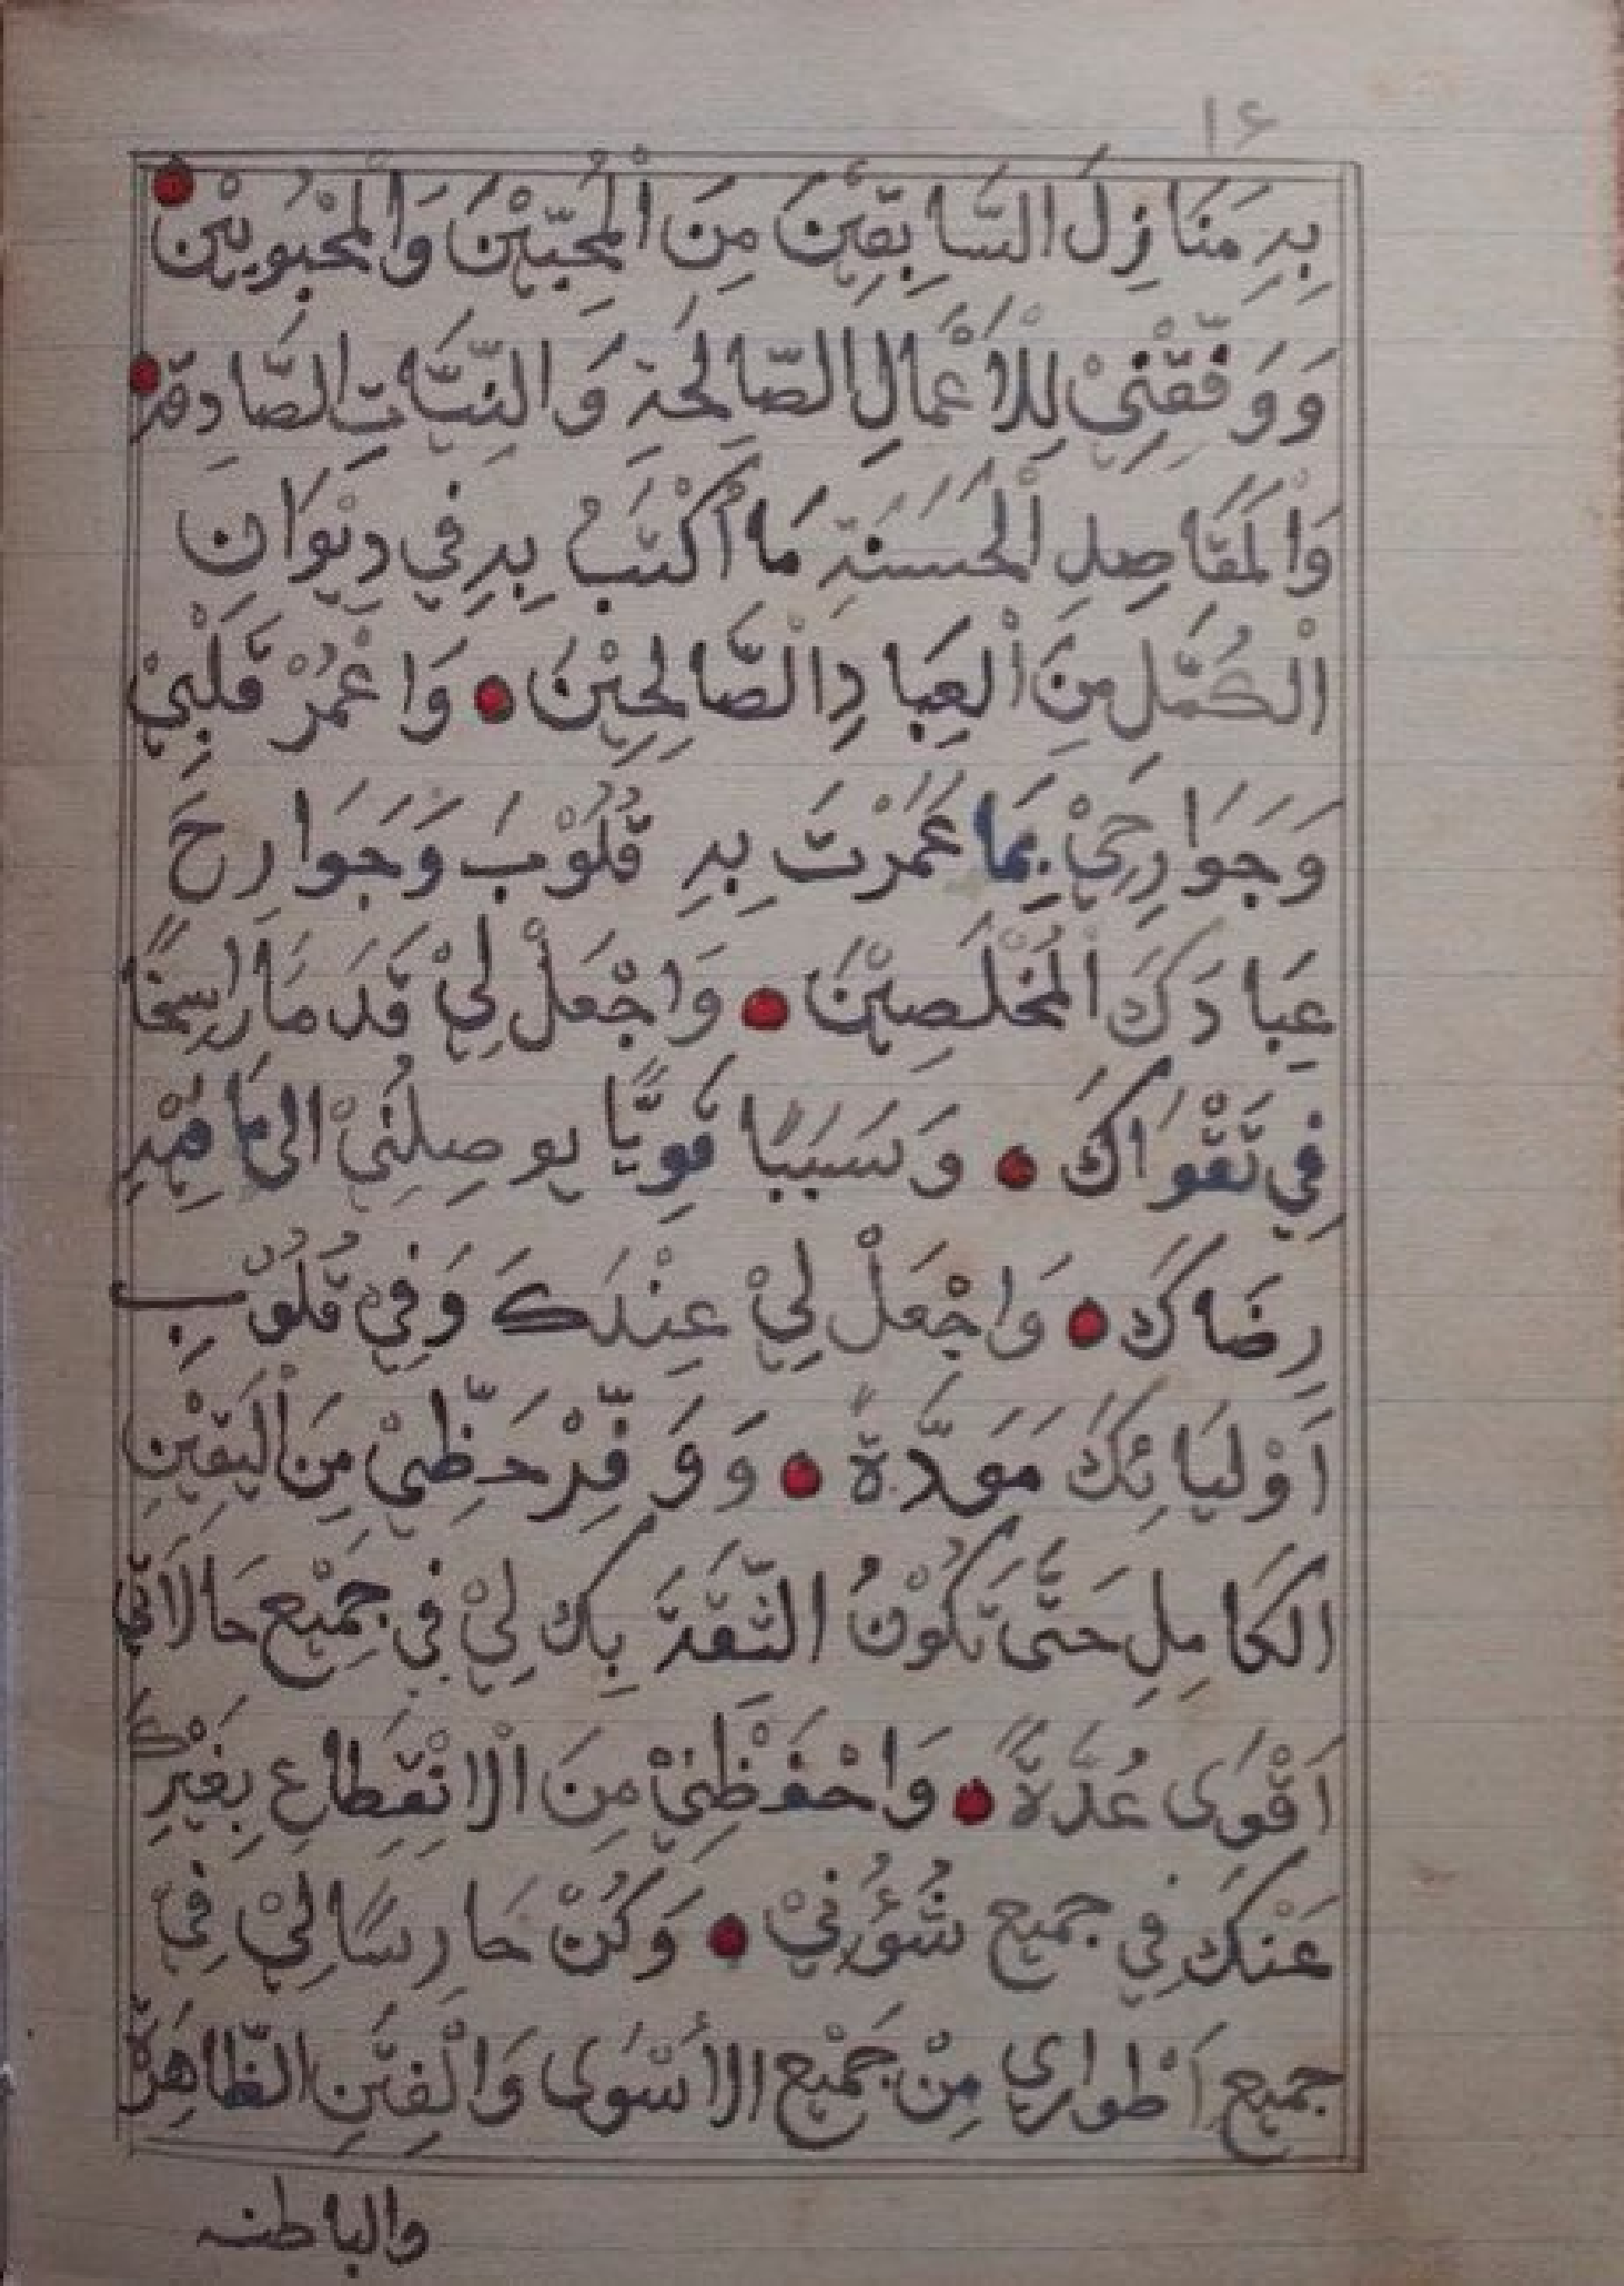 ١٤
بِهِ مَنَازِلَ السَّابِقِيْنَ مِنَ الْمُحِبِّيْنَ وَالْمَحْبُوْبِيْنَ
وَوَفِّقْنِيْ لِلْاَعْمَالِ الصَّالِحَةِ وَالنِّيَّاتِ الصَّادِقَةِ
وَالْمَقَاصِدِ الْحَسَنَةِ مَا أُكْتَبُ بِهِ فِي دِيْوَانِ
الْكُمَّلِ مِنَ الْعِبَادِ الصَّالِحِيْنَ ● وَاعْمُرْ قَلْبِيْ
وَجَوَارِحِيْ بِمَا عَمَرْتَ بِهِ قُلُوْبَ وَجَوَارِحَ
عِبَادَكَ الْمُخْلَصِيْنَ ● وَاجْعَلْ لِيْ قَدَمًا رَاسِخًا
فِي تَقْوَاكَ ● وَسَبَبًا قَوِيًّا يُوصِلُنِيْ اِلَى مَا فِيْهِ
رِضَاكَ ● وَاجْعَلْ لِيْ عِنْدَكَ وَفِيْ قُلُوْبِ
اَوْلِيَائِكَ مَوَدَّةً ● وَوَفِّرْ حَظِّيْ مِنَ الْيَقِيْنِ
الكَامِلِ حَتَّى تَكُوْنُ الثِّقَةَ بِكَ لِيْ فِي جَمِيْعِ حَالَاتِي
اَقْوَى عُدَّةً ● وَاحْفَظْنِيْ مِنَ الْاِنْقِطَاعِ بِغَيْرِكَ
عَنْكَ فِي جميع شُؤُنِيْ ● وَكُنْ حَارِسًا لِيْ فِيْ
جميع اَطْوَارِي مِنْ جَمِيْعِ الأَسْوَى وَالْفِتَنِ الظَّاهِرَةْ
والباطنه